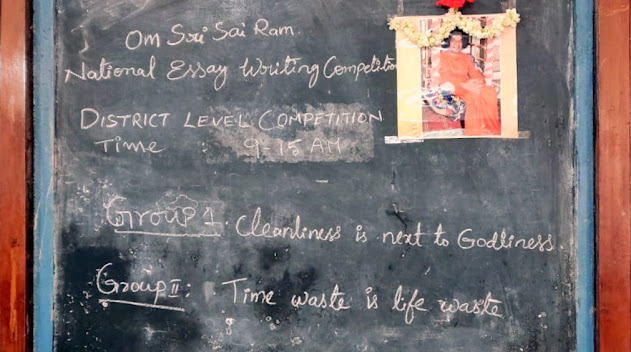 Om Sri Sai Ram.
National Essay Writing Competition
DISTRICT LEVEL COMPETITION
Time : 9.15 AM
Group 1. Cleanliness is next to Godliness.
Group II: Time waste is life waste